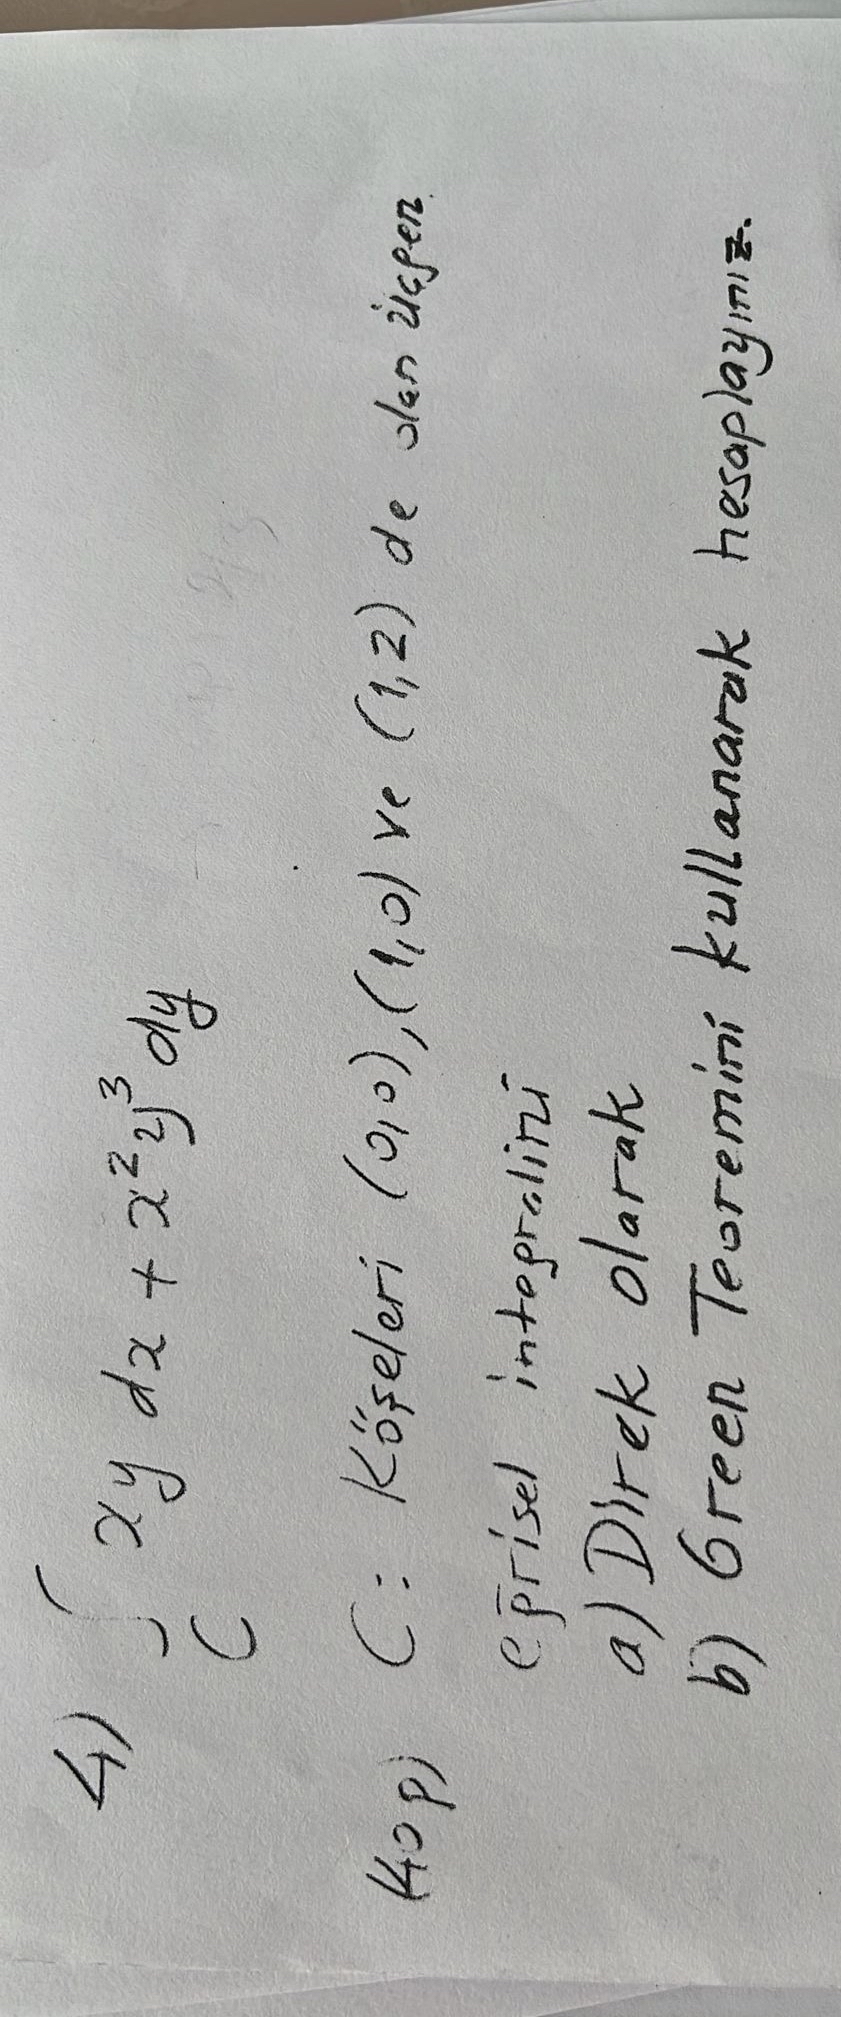 4) ∫ xy dx + x²y³ dy
C
(40p) C: Köşeleri (0,0), (1,0) ve (1,2) de olan üçgen
eğrisel integralini
a) Direk olarak
b) Green Teoremini kullanarak hesaplayınız.